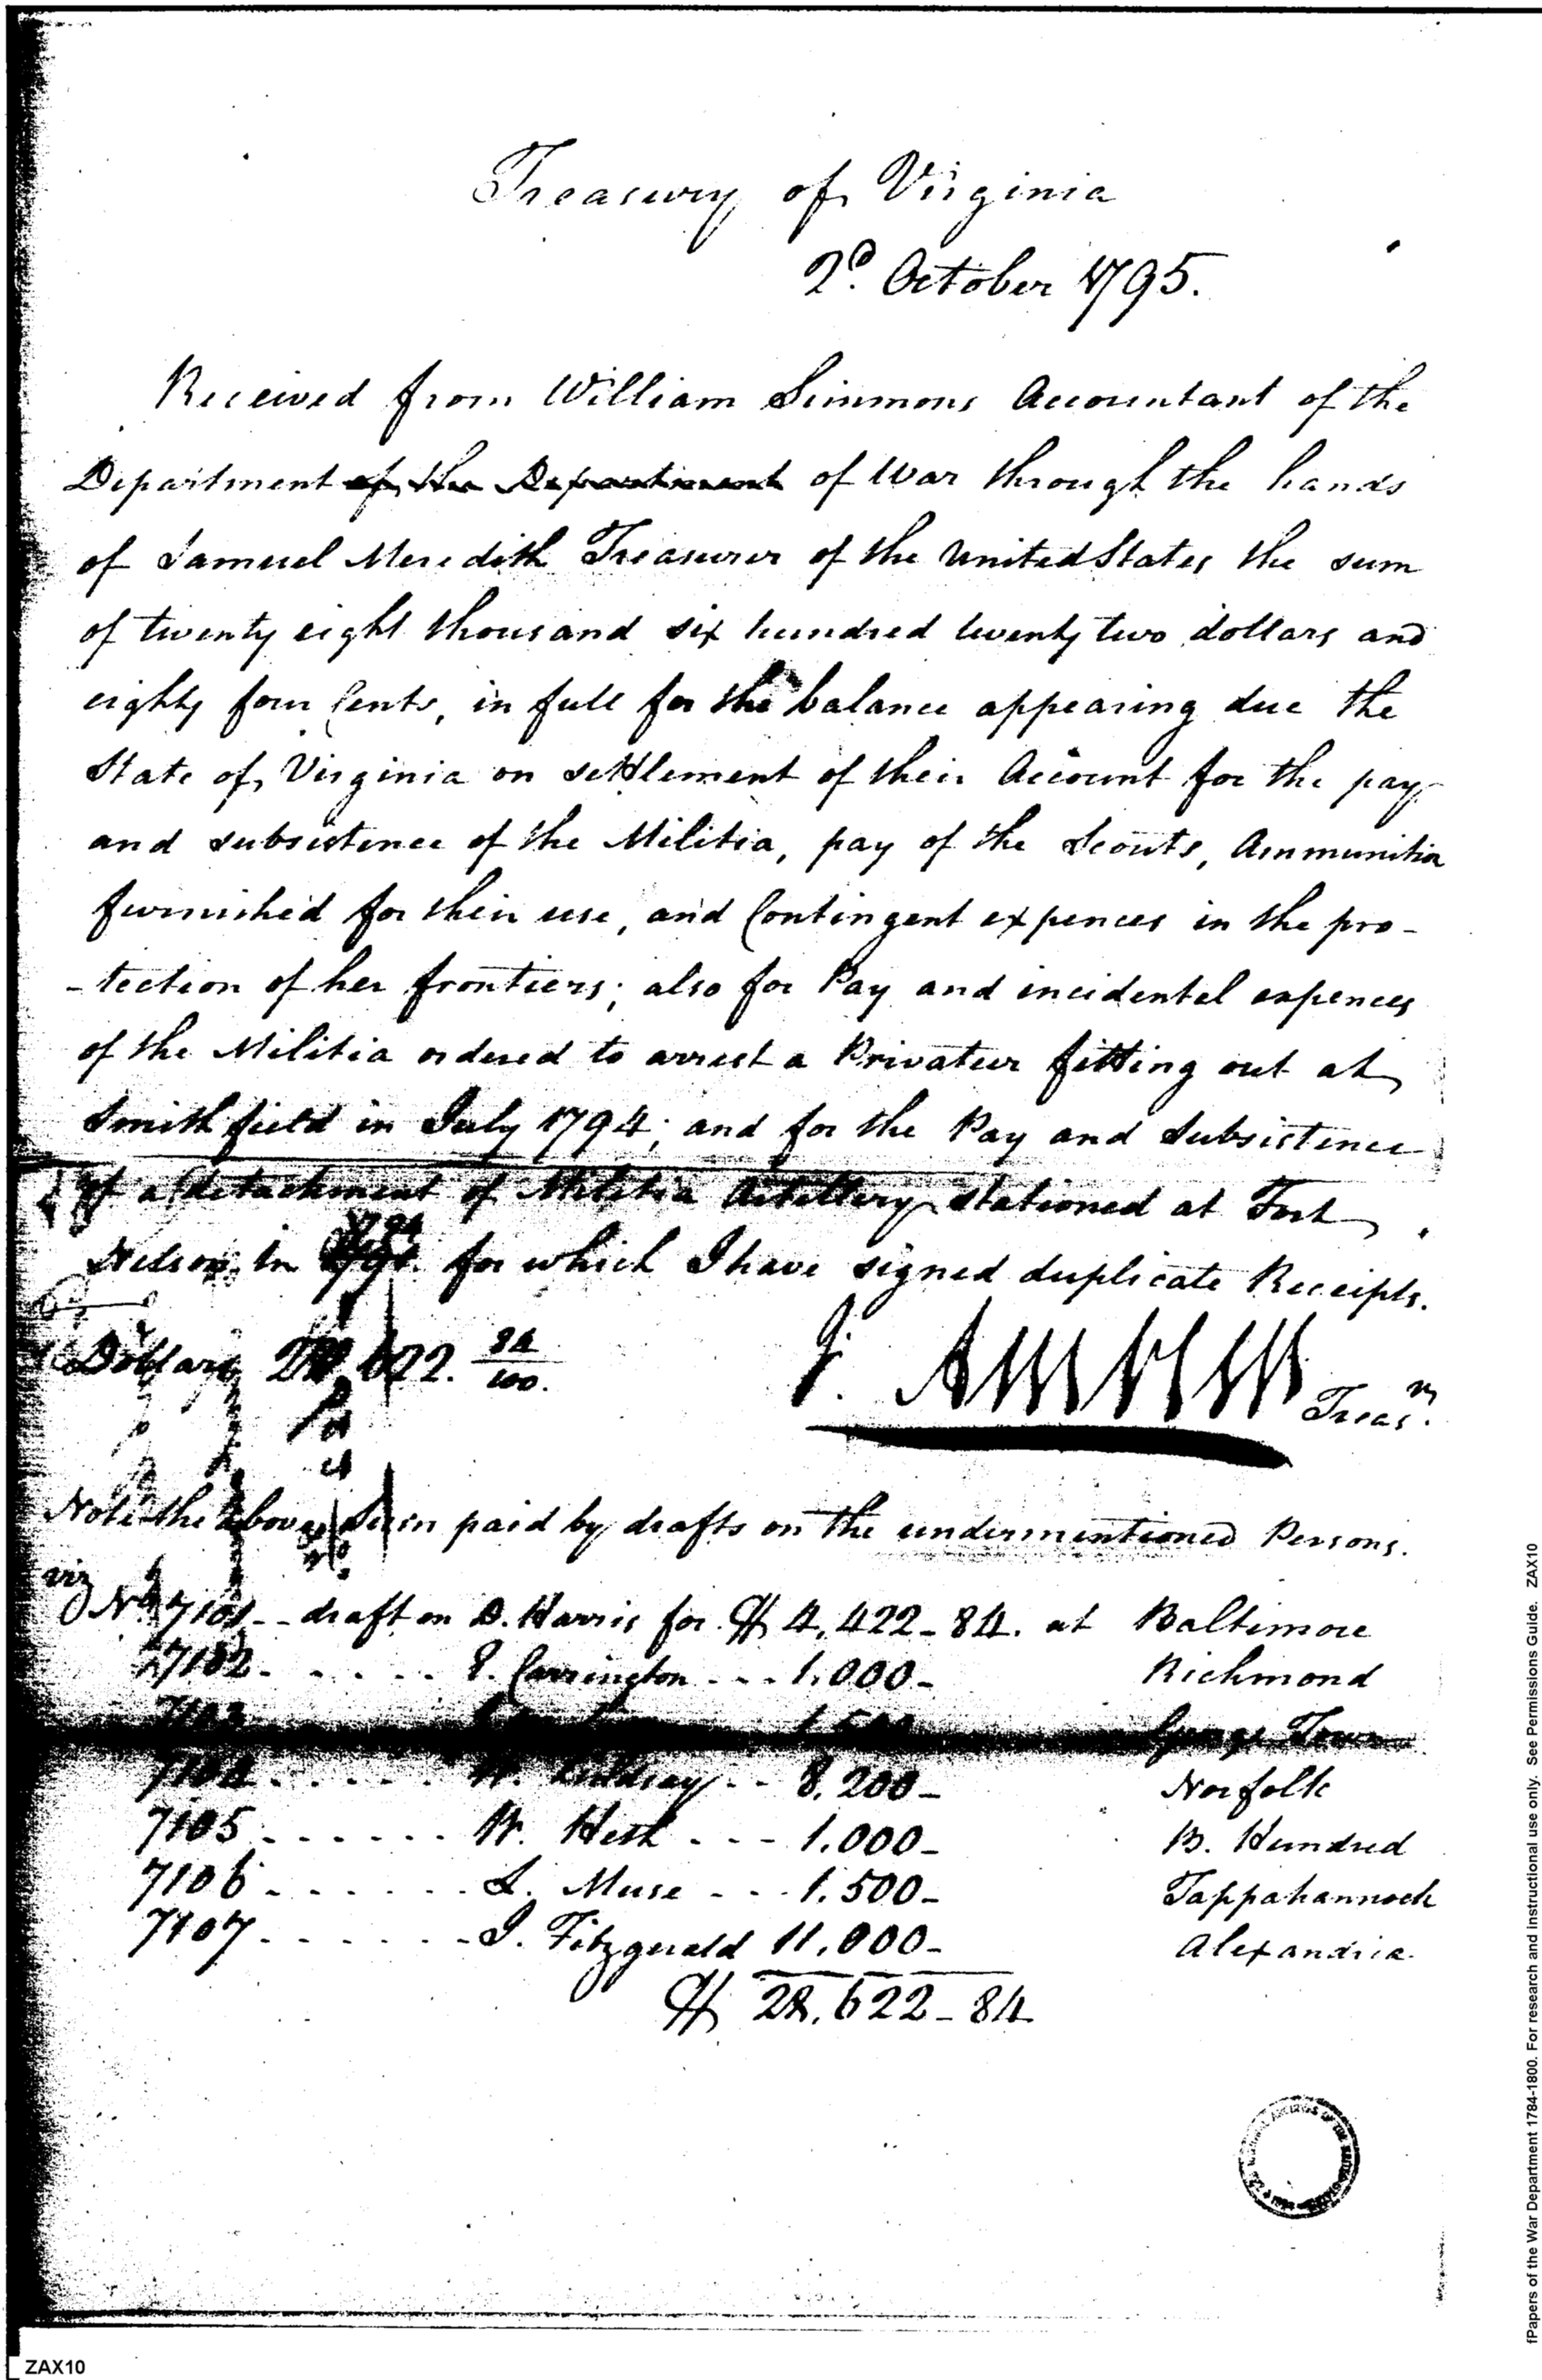 Treasury of Virginia
2d. October 1795.
Received from William Simmons Accountant of the
Department of the Department of War through the hands
of Samuel Meredith Treasurer of the United States the sum
of twenty eight thousand six hundred twenty two dollars and
eighty four Cents, in full for the balance appearing due the
State of Virginia on settlement of their Account for the pay
and subsistence of the Militia, pay of the Scouts, Ammunition
furnished for their use, and Contingent expences in the pro-
-tection of her frontiers; also for Pay and incidental expences
of the Militia ordered to arrest a Privateer fitting out at
Smithfield in July 1794; and for the Pay and Subsistence
of a detachment of Militia Artillery stationed at Fort
Nelson in for which I have signed duplicate Receipts.
Dollars 28,622. 84/100.
J. Ambler Treasr.
Note the above Sum paid by drafts on the undermentioned Persons.
viz
No. 7101 -- draft on D. Harris for $ 4,422-84. at Baltimore
7102 - - - - - E. Carrington - - - 1.000- Richmond
7103 1.500 George Town
7104 - - - - - W. Lindsay - - 8.200- Norfolk
7105 - - - - - - W. Heth - - - 1.000- B. Hundred
7106 - - - - - - L. Muse - - - 1.500- Tappahannock
7107 - - - - - - J. Fitzgerald 11.000- Alexandria
$ 28,622-84
fPapers of the War Department 1784-1800. For research and instructional use only. See Permissions Guide. ZAX10
ZAX10